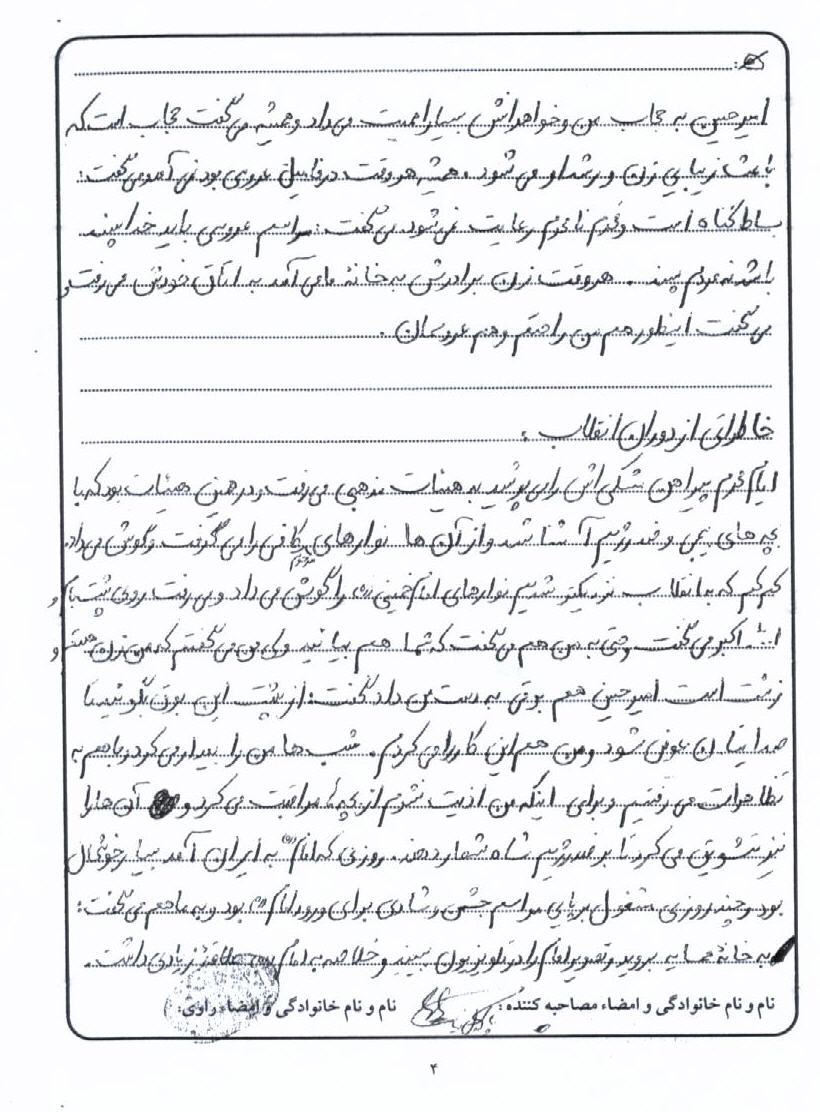 امیرحسین به حجاب من و خواهرانش بسیار اهمیت می‌داد و همیشه می‌گفت حجاب است که
باعث زیبایی زن و رشد او می‌شود. همیشه هر وقت در فامیل عروسی بود نمی آمد و می گفت:
بساط گناه است و محرم نامحرم رعایت نمی‌شود. می گفت: مراسم عروسی باید خدا پسند
باشد نه مردم پسند. هر وقت زن برادرش به خانهٔ ما می آمد به اتاق خودش می رفت و
می گفت اینطور هم من راحتم و هم عروسمان.
خاطراتی از دوران انقلاب:
ایام محرم پیراهن مشکی اش را می پوشید به هیئات مذهبی می رفت و در همین هیئات بود که با
بچه های و ضد رژیم آشنا شد و از آن ها نوارهای مرحوم کافی را می گرفت و گوش می داد.
کم کم که به انقلاب نزدیکتر شدیم نوارهای امام خمینی (ره) را گوش می داد و می رفت روی پشت بام و
ا... اکبر می گفت حتی به من هم می گفت که شما هم بیائید ولی من می گفتم که من زن هستم و
زشت است امیرحسین هم بوقی به دست من داد گفت: از پشت این بوق بگوئید تا
صدایتان عوض شود و من هم این کار را می کردم. شب ها من را بیدار می کرد و با هم به
تظاهرات می رفتیم و برای اینکه من اذیت نشوم از بچه ها مراقبت می کرد و آن ها را
نیز تشویق می کرد تا بر ضد رژیم شاه شعار دهند. روزی که امام (ره) به ایران آمد بسیار خوشحال
بود و چند روزی مشغول برپایی مراسم جشن و شادی برای ورود امام (ره) بود و به ما هم می گفت:
به خانهٔ همسایه بروید و تصویر امام را در تلویزیون ببینید و خلاصه به امام (ره) علاقهٔ زیادی داشت.
نام و نام خانوادگی و امضاء مصاحبه کننده: نام و نام خانوادگی و امضاء راوی:
۴